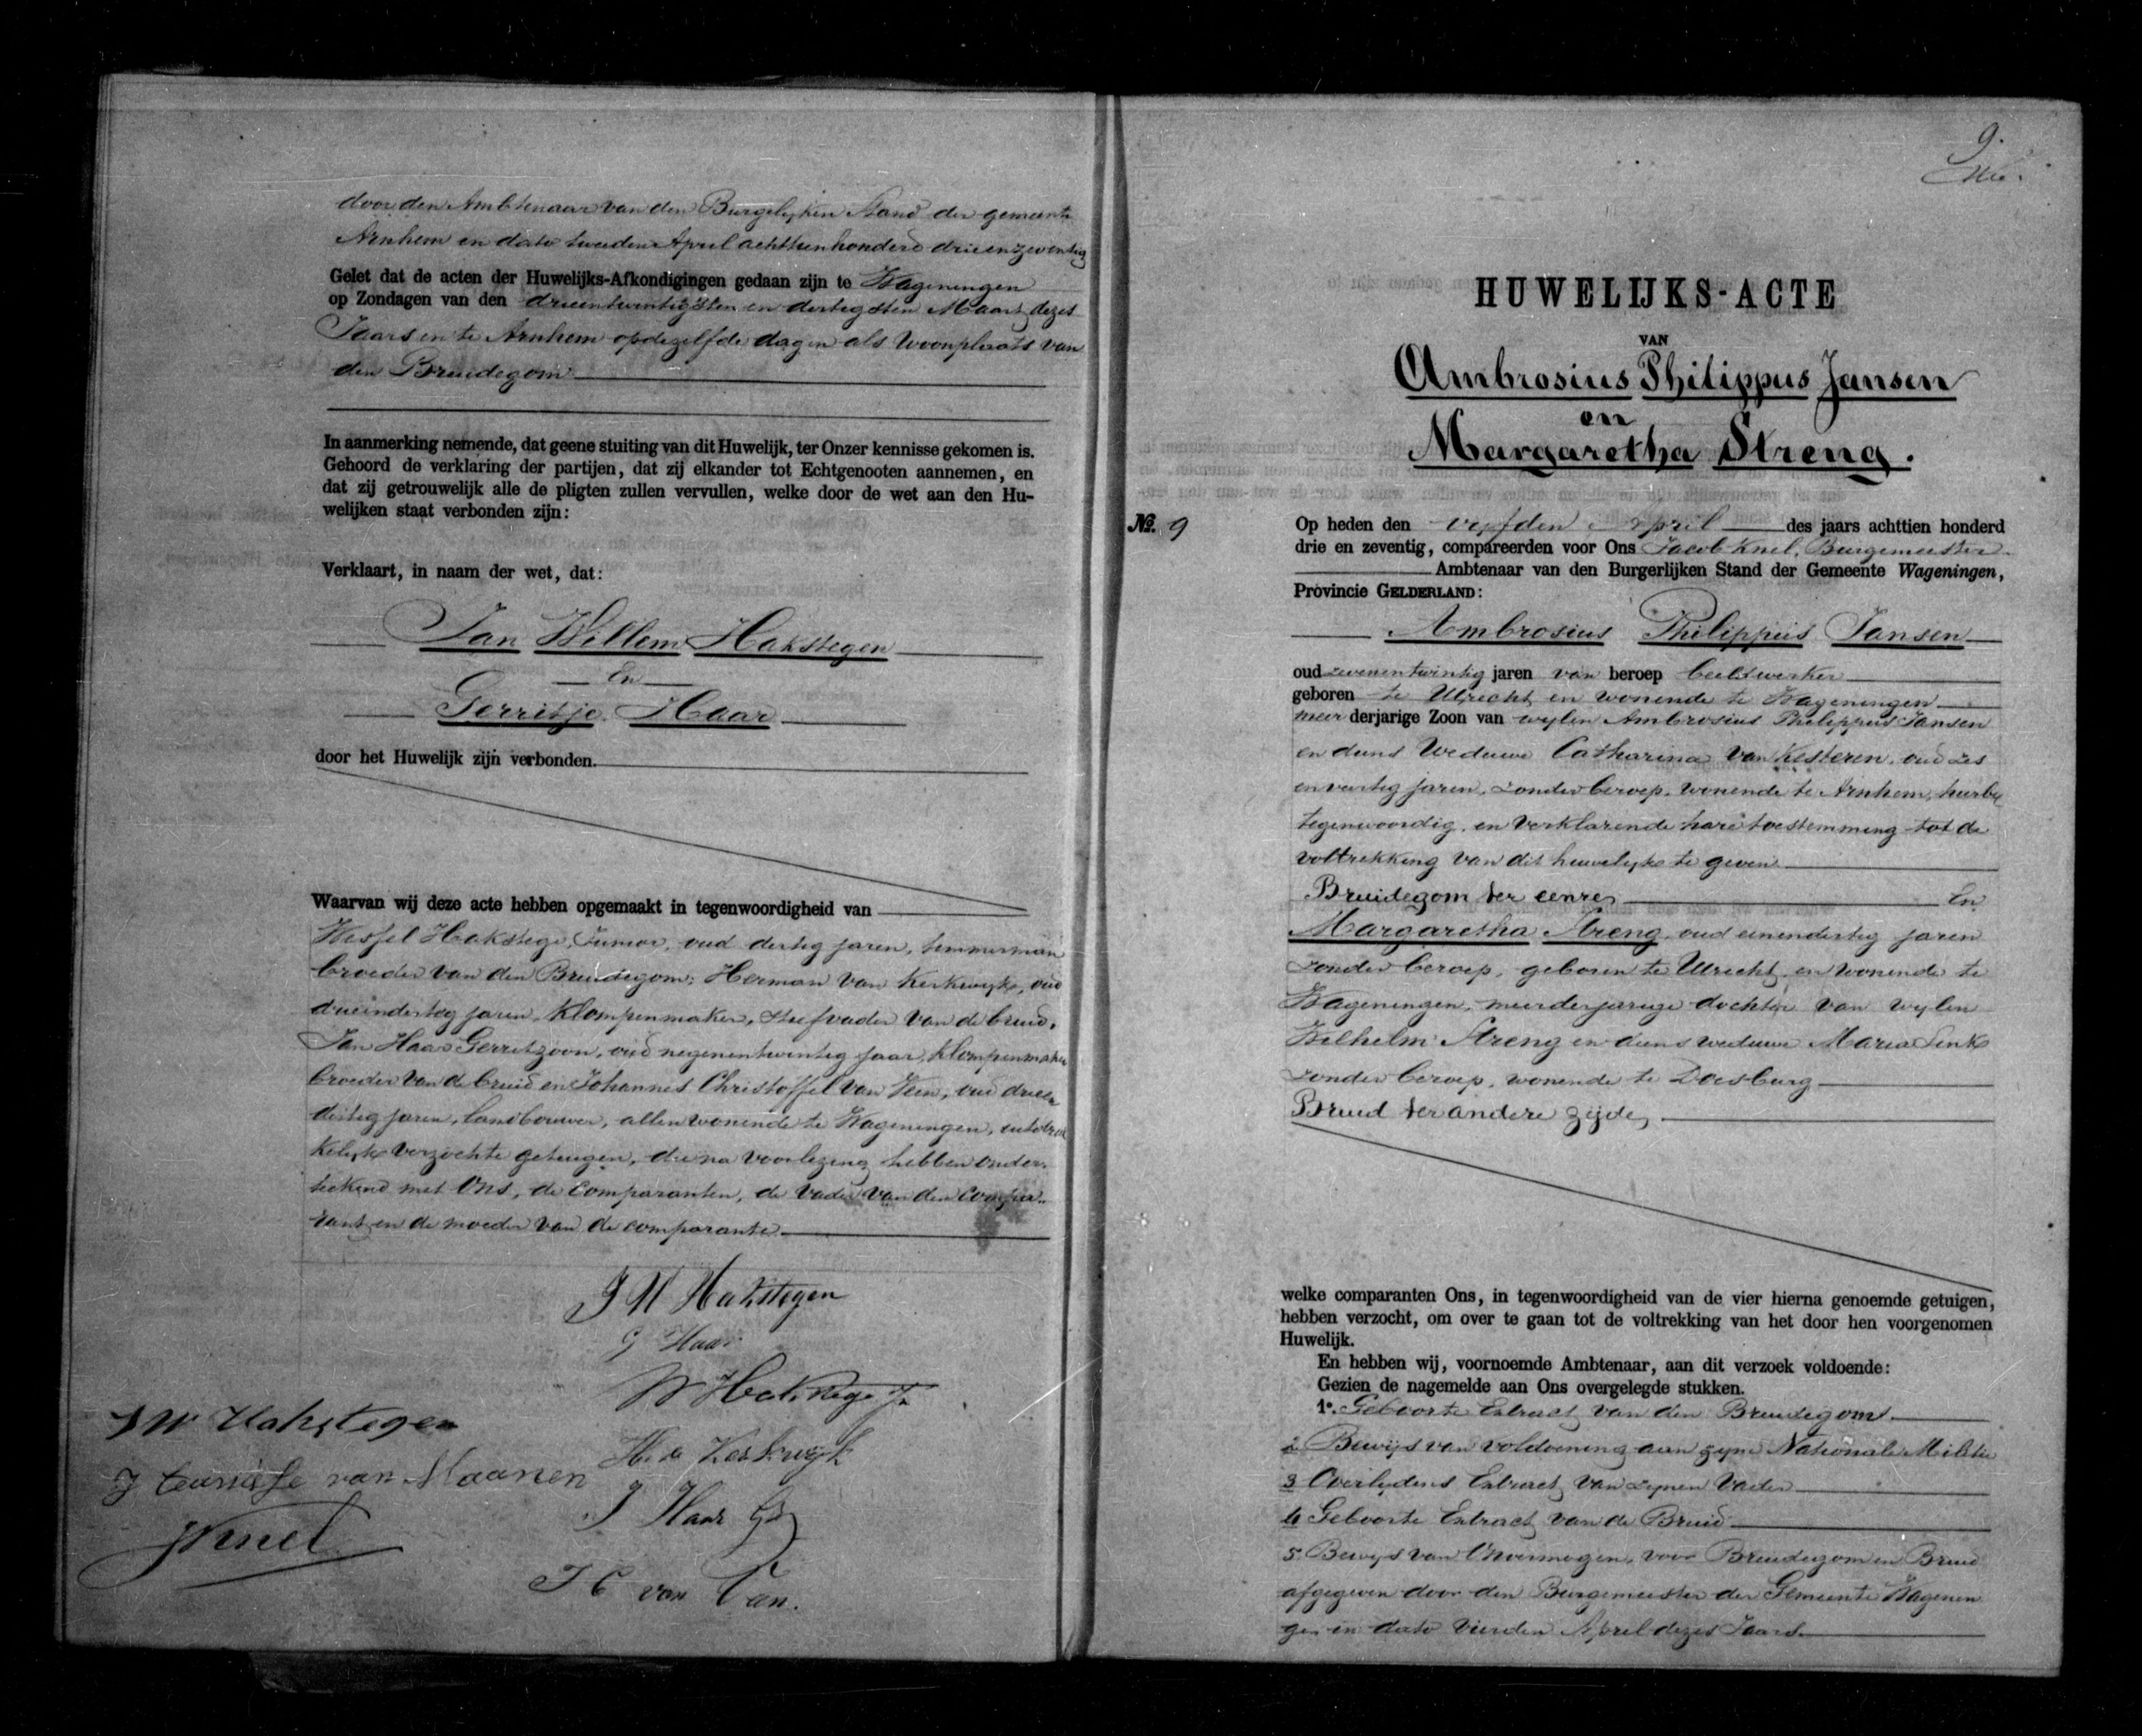 door den Ambtenaar van den Burgelyken Stand der gemeente
Arnhem en dato tweeden April achttienhonderd drieenzeventig
Gelet dat de acten der Huwelijks-Afkondigingen gedaan zijn te Wageningen
op Zondagen van den drieentwintigsten en dertigsten Maart dezes
Jaars en te Arnhem op dezelfde dagen als woonplaats van
den Bruidegom
In aanmerking nemende, dat geene stuiting van dit Huwelijk, ter Onzer kennisse gekomen is.
Gehoord de verklaring der partijen, dat zij elkander tot Echtgenooten aannemen, en
dat zij getrouwelijk alle de pligten zullen vervullen, welke door de wet aan den Hu-
welijken staat verbonden zijn:
Verklaart, in naam der wet, dat:
Jan Willem Hakstegen
En
Gerritje Haar
door het Huwelijk zijn verbonden.
Waarvan wij deze acte hebben opgemaakt in tegenwoordigheid van
Wessel Hakstege, Junior, oud dertig jaren, timmerman
broeder van den Bruidegom; Herman van Kerkwyk, oud
drieendertig jaren, Klompenmaker, stiefvader van de bruid,
Jan Haar Gerritzoon, oud negenentwintig jaar, Klompenmaker
broeder van de bruid en Johannes Christoffel van Veen, oud drieen
dertig jaren, landbouwer, allen wonende te Wageningen, uitdruk
kelyk verzochte getuigen, die na voorlezing hebben onder-
teekend met Ons, de comparanten, de vader van den compa-
rant en de moeder van de comparante
J W Hakstegen
G Haar
W Hakstege Jr
H. v Kerkwyk
J Haar Gz
J C van Veen.
J W Hakstegen
J Teunisse van Maanen
J Knel
9.
HUWELIJKS-ACTE
VAN
Ambrosius Philippus Jansen
en
Margaretha Streng.
No. 9
Op heden den vyfden April des jaars achttien honderd
drie en zeventig, compareerden voor Ons Jacob Knel, Burgemeester
Ambtenaar van den Burgerlijken Stand der Gemeente Wageningen,
Provincie GELDERLAND:
Ambrosius Philippus Jansen
oud zevenentwintig jaren van beroep beeldwerker
geboren te Utrecht en wonende te Wageningen
meer derjarige Zoon van wylen Ambrosius Philippus Jansen
en diens Weduwe Catharina van Kesteren, oud zes
en veertig jaren, zonder beroep, wonende te Arnhem, hierby
tegenwoordig, en verklarende hare toestemming tot de
voltrekking van dit huwelyk te geven
Bruidegom ter eenre, En
Margaretha Streng, oud eenendertig jaren
zonder beroep, geboren te Utrecht en wonende te
Wageningen, meerderjarige dochter van wylen
Wilhelm Streng en diens weduwe Maria Link
zonder beroep, wonende te Doesburg
Bruid ter andere zyde,
welke comparanten Ons, in tegenwoordigheid van de vier hierna genoemde getuigen,
hebben verzocht, om over te gaan tot de voltrekking van het door hen voorgenomen
Huwelijk.
En hebben wij, voornoemde Ambtenaar, aan dit verzoek voldoende:
Gezien de nagemelde aan Ons overgelegde stukken.
1o. Geboorte Extract van den Bruidegom
2 Bewijs van voldoening aan zyne Nationale Militie
3 Overlydens Extract van zynen Vader
4 Geboorte Extract van de Bruid
5. Bewys van Onvermogen, voor Bruidegom en Bruid
afgegeven door den Burgemeester der Gemeente Wagenin
gen in dato vierden April dezes Jaars